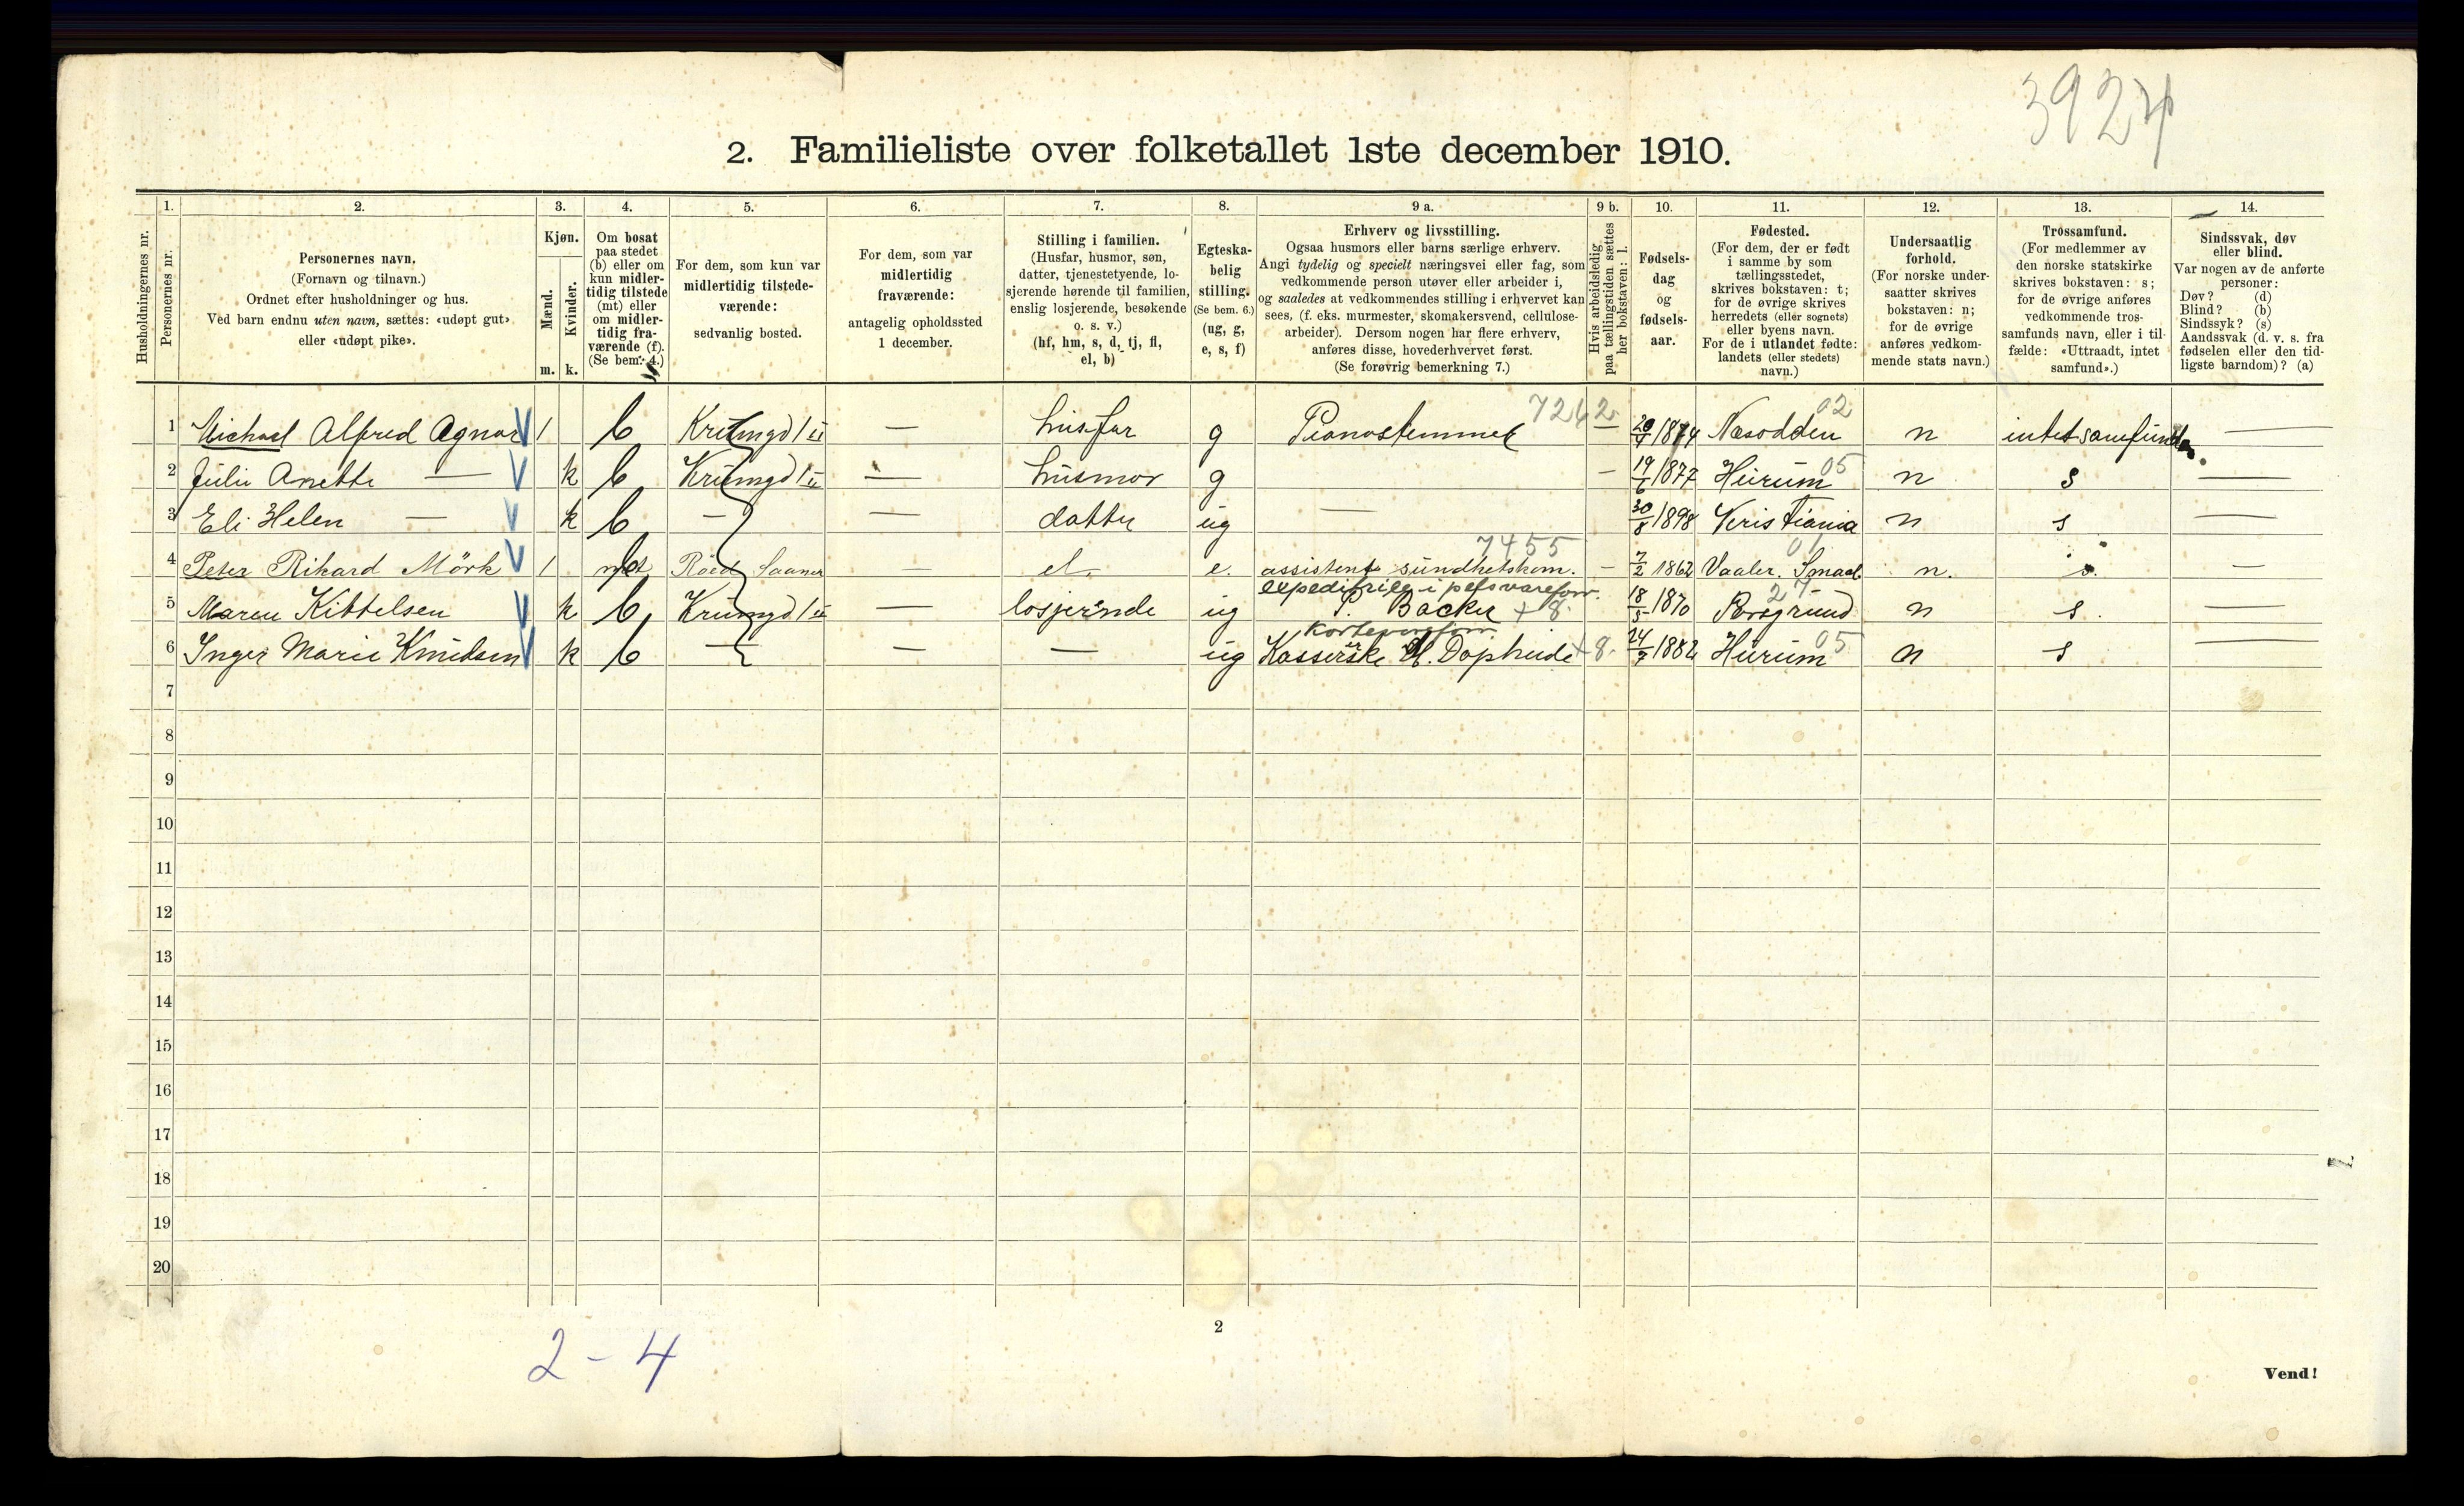 3924
2. Familieliste over folketallet 1ste december 1910.
1. 2. 3. 4. 5. 6. 7. 8. 9 a. 9 b. 10. 11. 12. 13. 14.
Husholdningernes nr.
Personernes nr.
Personernes navn.
(Fornavn og tilnavn.)
Ordnet efter husholdninger og hus.
Ved barn endnu uten navn, sættes: «udøpt gut»
eller «udøpt pike».
Kjøn.
Mænd.
Kvinder.
m. k.
Om bosat
paa stedet
(b) eller om
kun midler-
tidig tilstede
(mt) eller
om midler-
tidig fra-
værende (f).
(Se bem. 4.)
For dem, som kun var
midlertidig tilstede-
værende:
sedvanlig bosted.
For dem, som var
midlertidig
fraværende:
antagelig opholdssted
1 december.
Stilling i familien.
(Husfar, husmor, søn,
datter, tjenestetyende, lo-
sjerende hørende til familien,
enslig losjerende, besøkende
o. s. v.)
(hf, hm, s, d, tj, fl,
el, b)
Egteska-
belig
stilling.
(Se bem. 6.)
(ug, g,
e, s, f)
Erhverv og livsstilling.
Ogsaa husmors eller barns særlige erhverv.
Angi tydelig og specielt næringsvei eller fag, som
vedkommende person utøver eller arbeider i,
og saaledes at vedkommendes stilling i erhvervet kan
sees, (f. eks. murmester, skomakersvend, cellulose-
arbeider). Dersom nogen har flere erhverv,
anføres disse, hovederhvervet først.
(Se forøvrig bemerkning 7.)
Hvis arbeidsledig
paa tællingstiden sættes
her bokstaven: l.
Fødsels-
dag
og
fødsels-
aar.
Fødested.
(For dem, der er født
i samme by som
tællingsstedet,
skrives bokstaven: t;
for de øvrige skrives
herredets (eller sognets)
eller byens navn.
For de i utlandet fødte:
landets (eller stedets)
navn.)
Undersaatlig
forhold.
(For norske under-
saatter skrives
bokstaven: n;
for de øvrige
anføres vedkom-
mende stats navn.)
Trossamfund.
(For medlemmer av
den norske statskirke
skrives bokstaven: s;
for de øvrige anføres
vedkommende tros-
samfunds navn, eller i til-
fælde: «Uttraadt, intet
samfund».)
Sindssvak, døv
eller blind.
Var nogen av de anførte
personer:
Døv? (d)
Blind? (b)
Sindssyk? (s)
Aandssvak (d. v. s. fra
fødselen eller den tid-
ligste barndom)? (a)
7262 02
1 Michael Alfred Agnar 1 b — husfar g Pianostemmer — 20/4 1874 Næsodden n intet samfund —
2 Julie Anette — k b — husmor g — 19/6 1877 Hurum 05 n s —
3 Eli Helen — k b — — datter ug — 30/8 1898 Kristiania n s —
7455 01
4 Peter Rikard Mörk 1 mt Röed Saaner — el. e. assistent sundhetskom. — 7/2 1862 Vaaler. Smaal n. s. —
expeditrice i pelsvareforr. 27
5 Maren Kittelsen k b — losjerende ug P. Backer + 8. 18/5 1870 Porsgrund n s. —
6 Inger Marie Knudsen k b — — — ug Kasserske H. Dopheide + 8. 24/7 1882 Hurum 05 n s —
7
8
9
10
11
12
13
14
15
16
17
18
19
20
2
2 - 4
Vend!